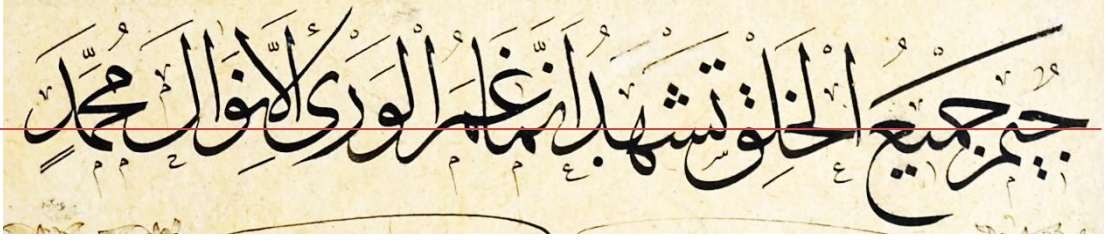 جِيمٌ جَمِيعُ الْخَلْقِ تَشْهَدُ اَنَّمَا غَمَرَ الْوَرٰى اِلَّا نَوَالُ مُحَمَّدٍ